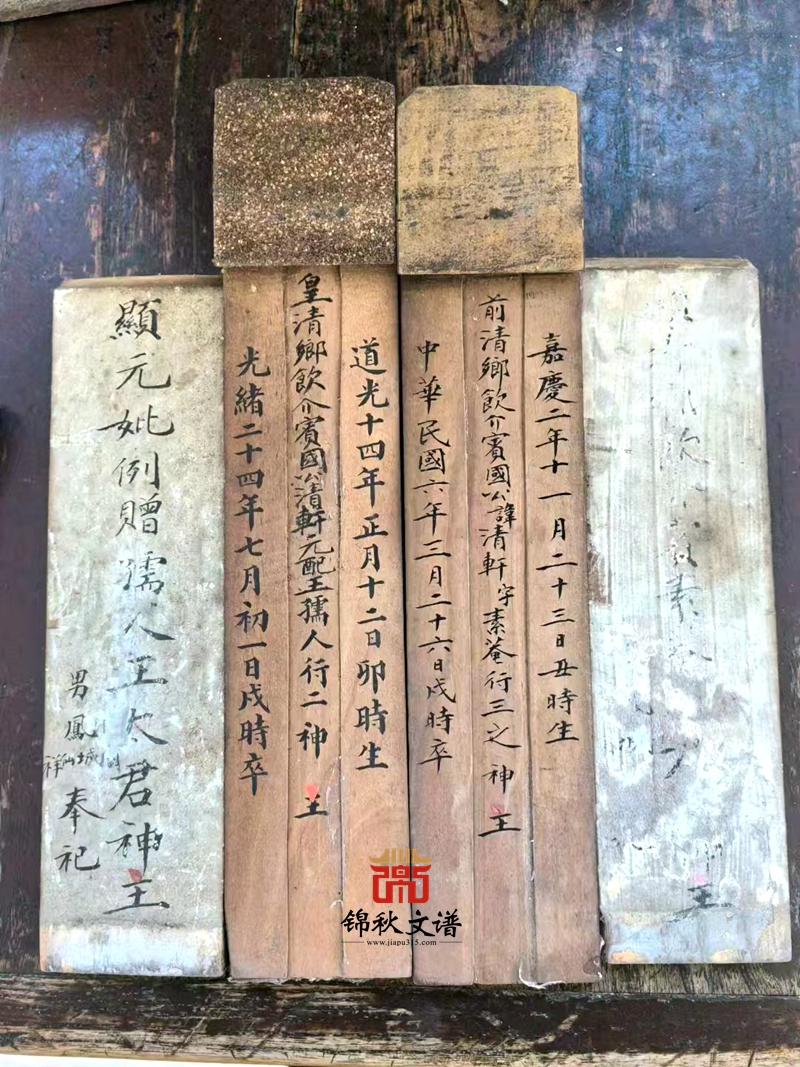 嘉慶二年十一月二十三日丑時生
前清鄉飲介賓國公諱清軒字素菴行三之神主
中華民國六年三月二十六日戌時卒
道光十四年正月十二日卯時生
皇清鄉飲介賓國公清軒元配王孺人行二神主
光緒二十四年七月初一日戌時卒
顯元妣例贈孺人王太君神主
男鳳
祥仙城
奉祀
飲
素
主
锦秋文谱
www.jiapu315.com